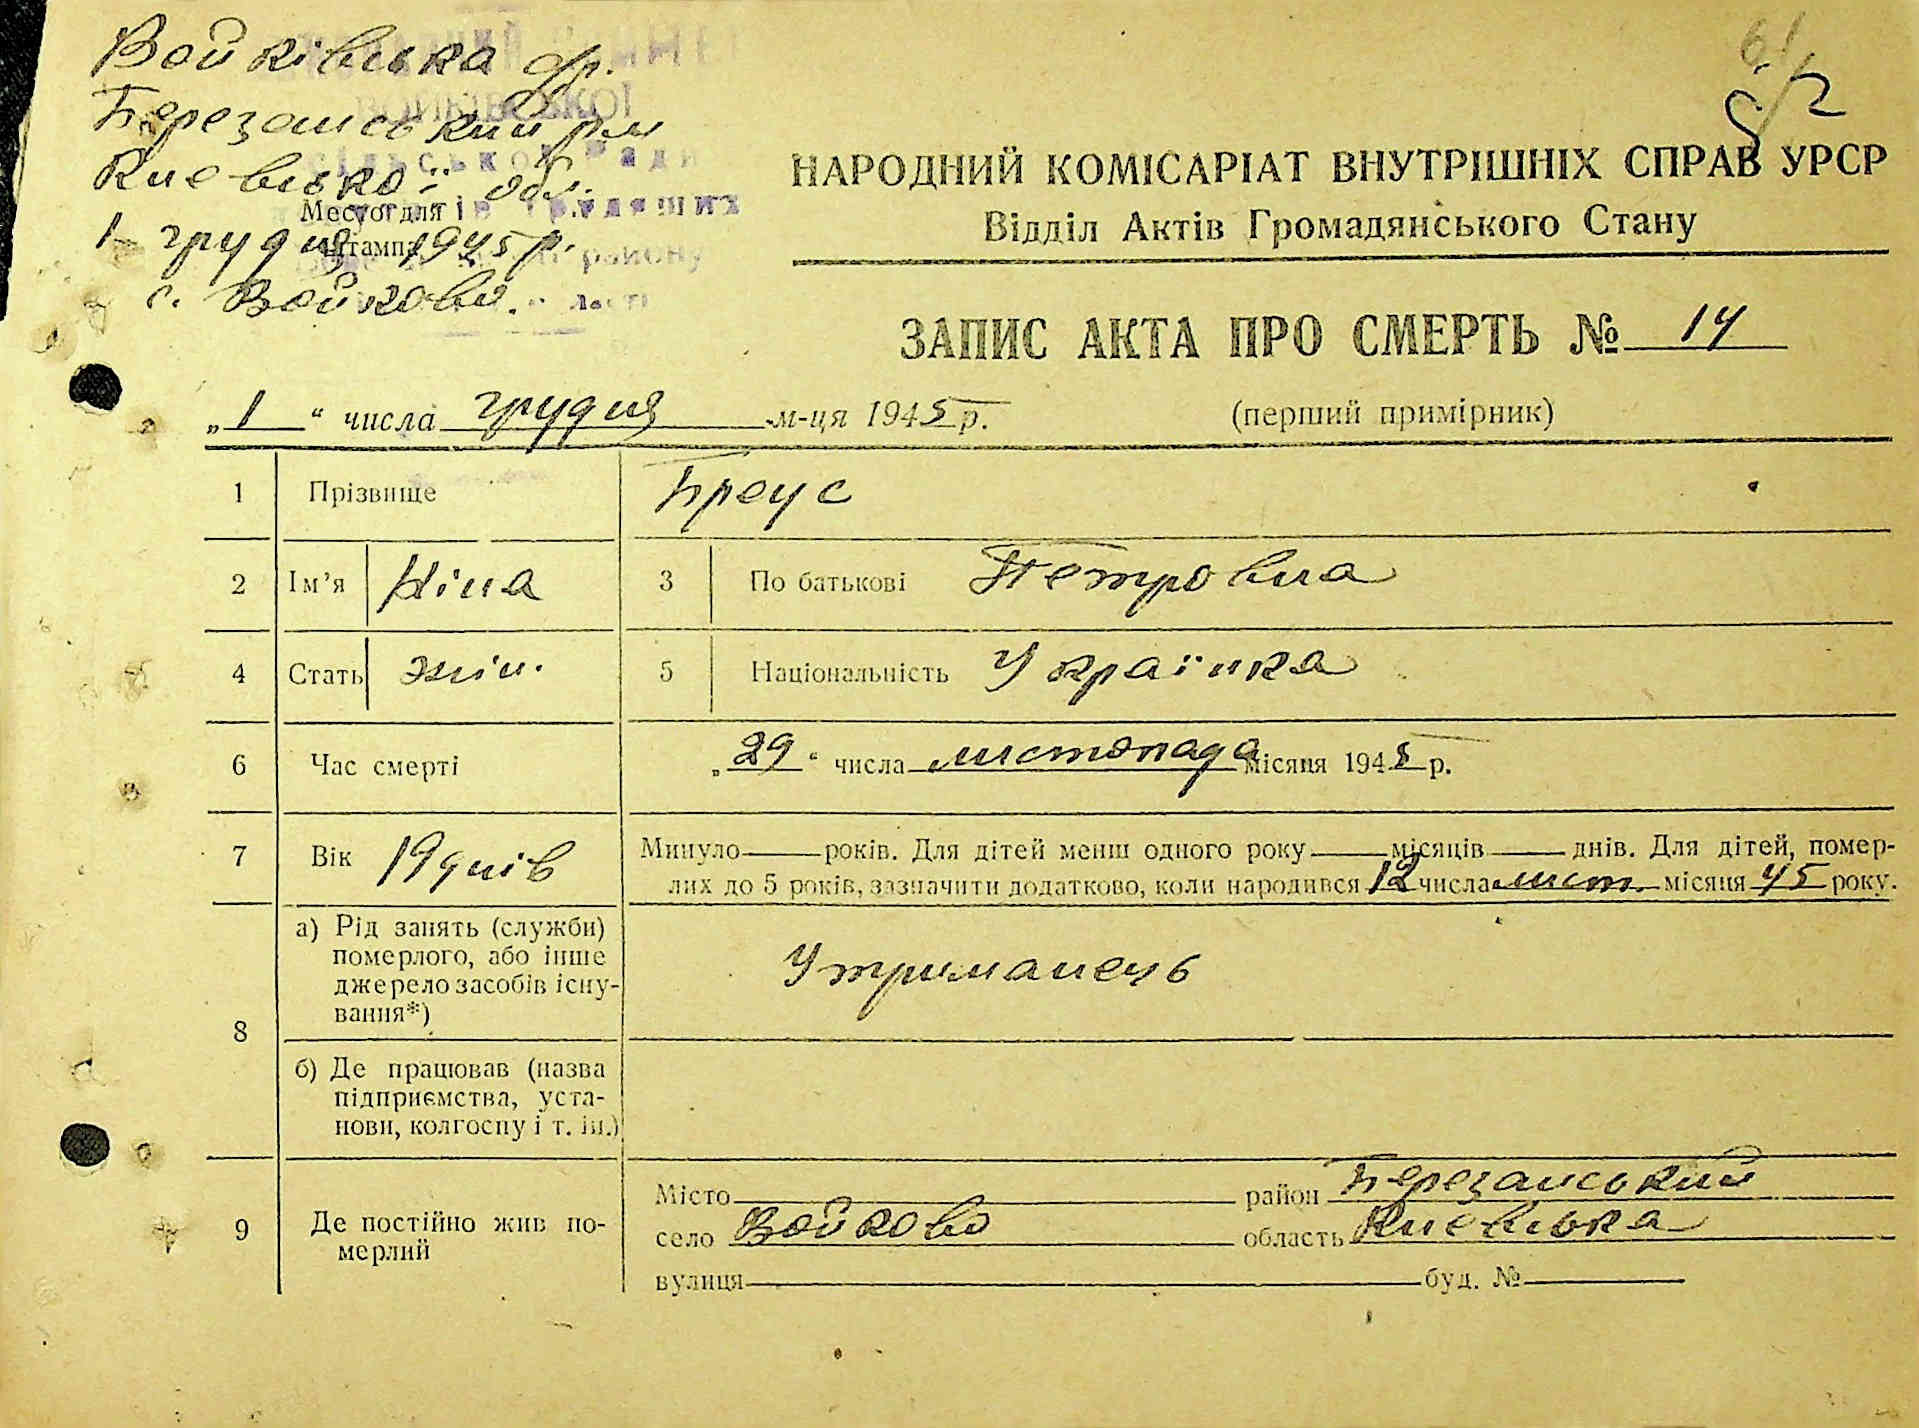 Войківська с/р.
Березанський р-н
Києвської обл.
Место для
штампа
1 грудня 1945 р.
с. Войково.
61
52
НАРОДНИЙ КОМІСАРІАТ ВНУТРІШНІХ СПРАВ УРСР
Відділ Актів Громадянського Стану
ЗАПИС АКТА ПРО СМЕРТЬ № 14
„ 1 “ числа грудня м-ця 1945 р.
(перший примірник)
1 Прізвище Бреус
2 Ім’я Ніна 3 По батькові Петровна
4 Стать жін. 5 Національність Українка
6 Час смерті „ 29 “ числа листопада місяця 1945 р.
7 Вік 19 днів Минуло ___ років. Для дітей менш одного року ___ місяців ___ днів. Для дітей, помер-
лих до 5 років, зазначити додатково, коли народився 12 числа лист. місяця 45 року.
8
а) Рід занять (служби)
померлого, або інше
джерело засобів існу-
вання*)
Утриманець
б) Де працював (назва
підприємства, уста-
нови, колгоспу і т. ін.)
9 Де постійно жив по-
мерлий
Місто ___ район Березанський
село Войково область Києвська
вулиця ___ буд. № ___